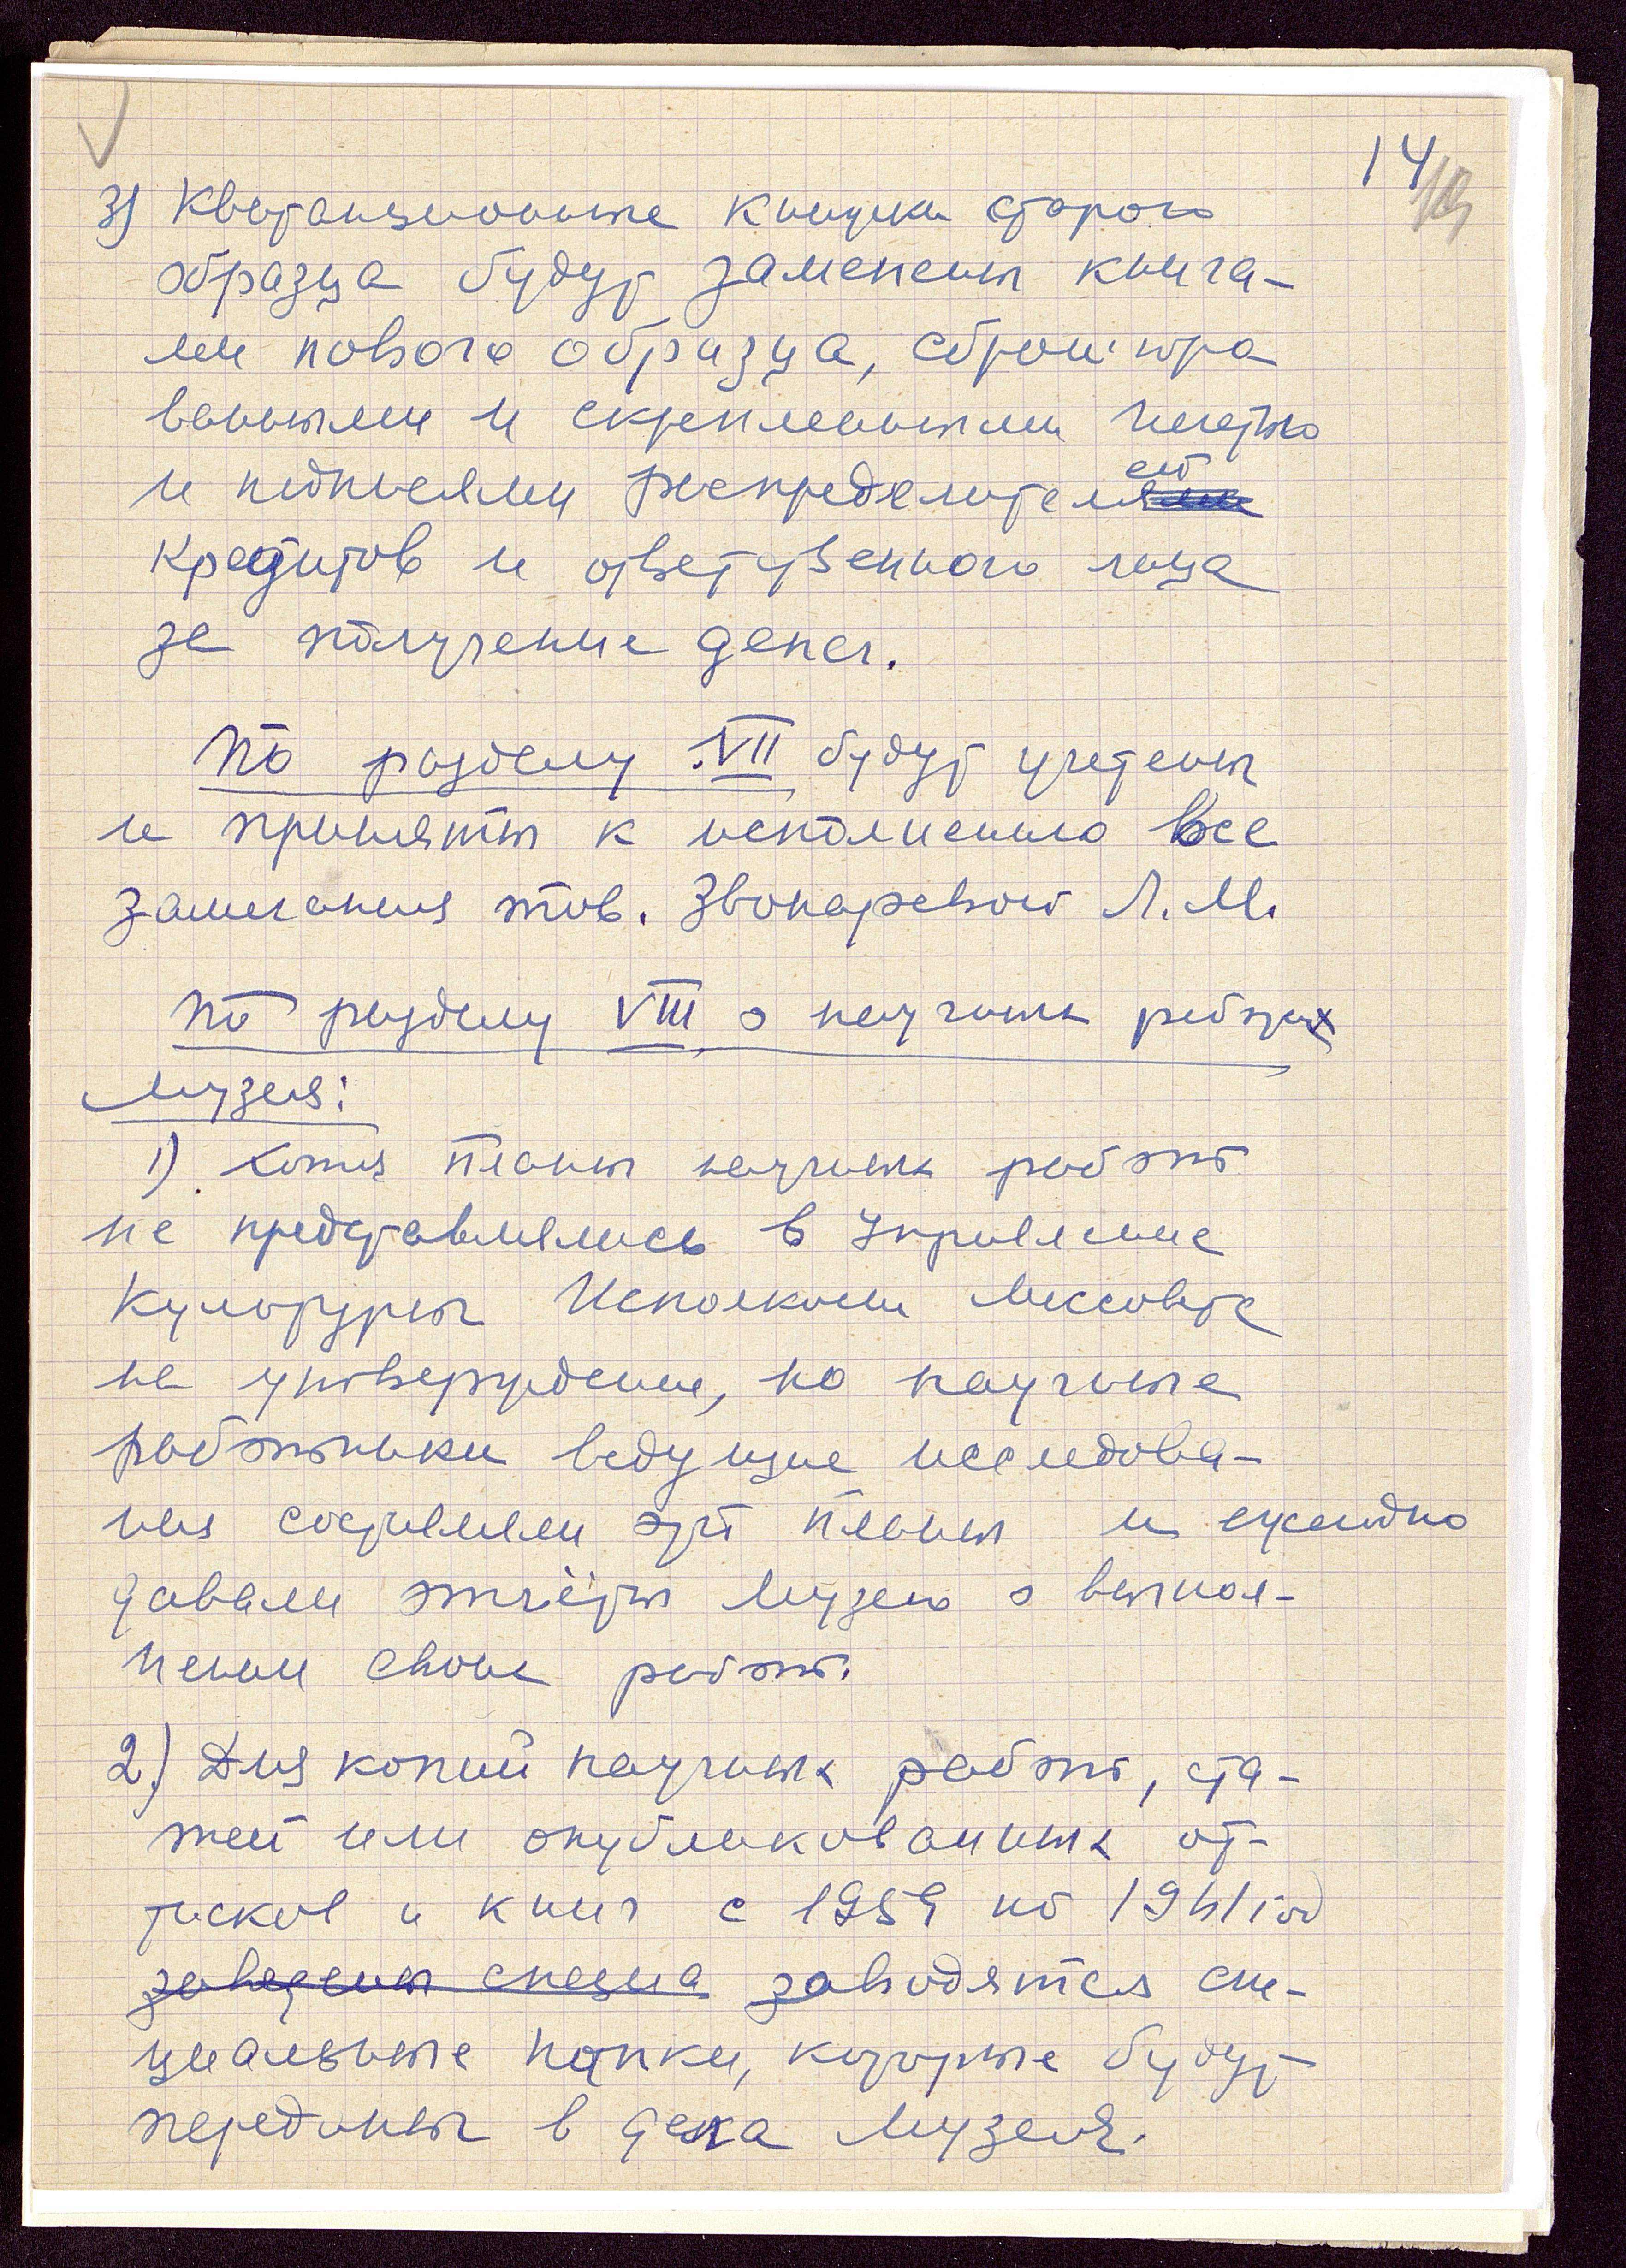 14
3) Квитанционные книжки старого
образца будут заменены книга-
ми нового образца, сброшюро
ванными и скрепленными печатью
и подписями распорядителей
кредитов и ответственного лица
за получение денег.
По разделу VII будут учтены
и приняты к исполнению все
замечания тов. Звонаревой Л. М.
По разделу VIII о научных работах
Музея:
1) Хотя планы научных работ
не представлялись в Управление
культуры Исполкома Моссовета
на утверждение, но научные
работники ведущие исследова-
ния составляли эти планы и ежегодно
давали отчёты Музею о выпол-
нении своих работ.
2) Для копий научных работ, ста-
тей или опубликованных от-
тисков и книг с 1959 по 1961 год
заведены специа заводятся спе-
циальные папки, которые будут
переданы в дела Музея.